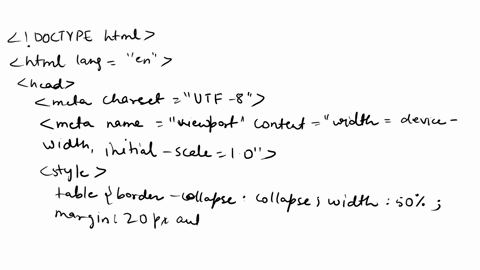 <!DOCTYPE html>
<html lang = "en">
<head>
<meta charset = "UTF-8">
<meta name = "viewport" content = "width = device-
width, initial-scale = 1.0">
<style>
table {border-collapse . collapse ; width : 50% ;
margin : 20 px aut